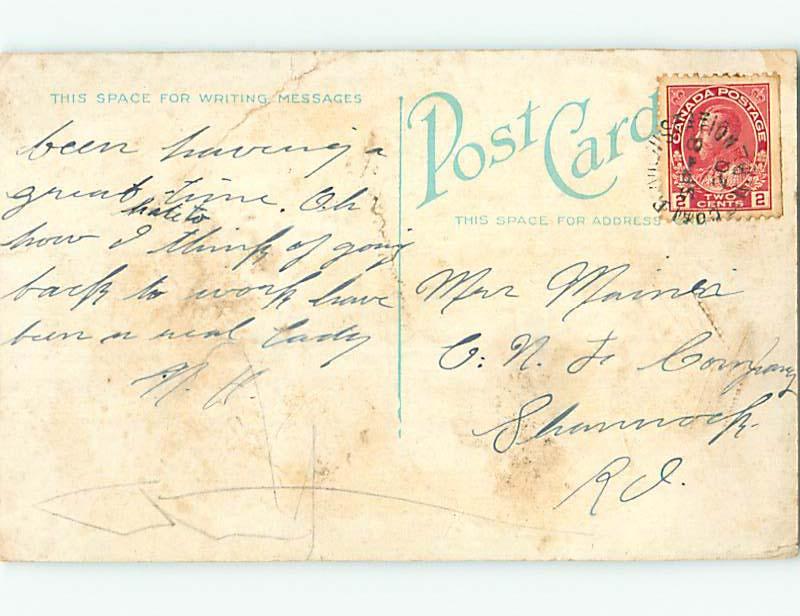 THIS SPACE FOR WRITING MESSAGES
Post Card
THIS SPACE FOR ADDRESS
CANADA POSTAGE
2 TWO CENTS 2
been having a
great time. Oh
how I hate to think of going
back to work have
been a real lady
N. H.
Mrs
O. N. Co Company
Shannock
R I.